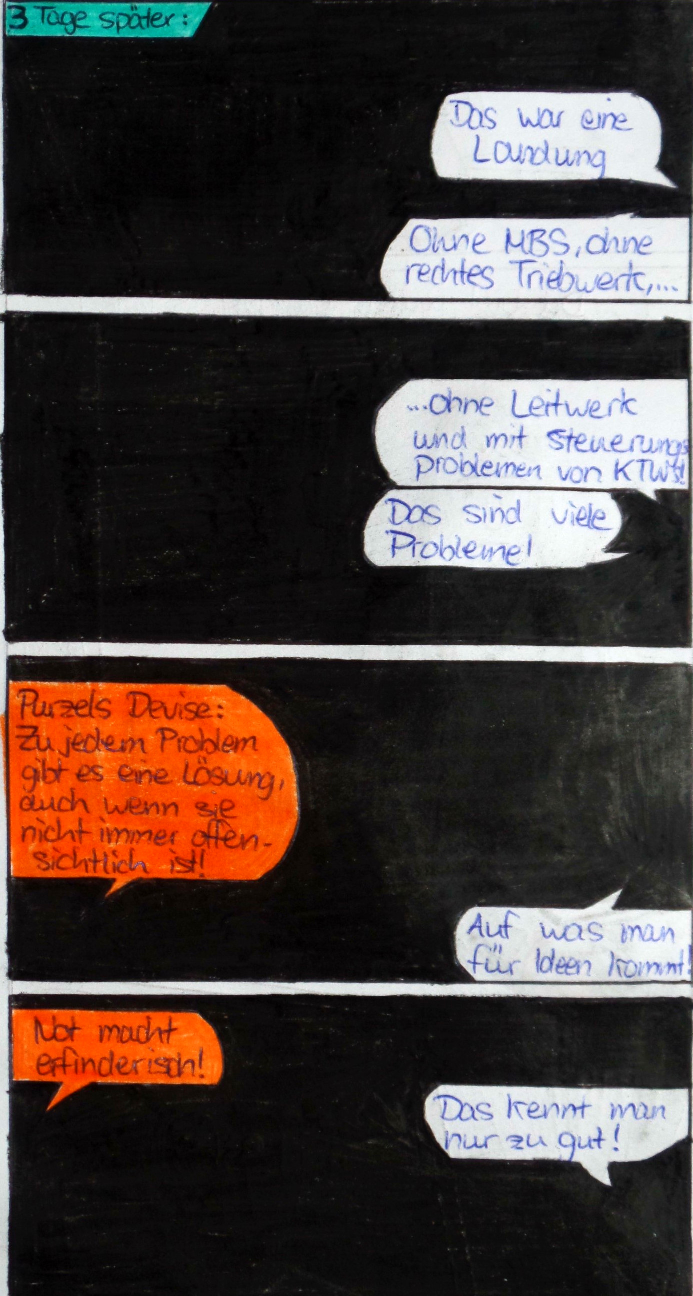 3 Tage später:
Das war eine
Landung
Ohne MBS, ohne
rechtes Triebwerk,...
...ohne Leitwerk
und mit Steuerungs
problemen von KTWs!
Das sind viele
Probleme!
Purzels Devise:
Zu jedem Problem
gibt es eine Lösung,
auch wenn sie
nicht immer offen-
sichtlich ist!
Auf was man
für Ideen kommt!
Not macht
erfinderisch!
Das kennt man
nur zu gut!